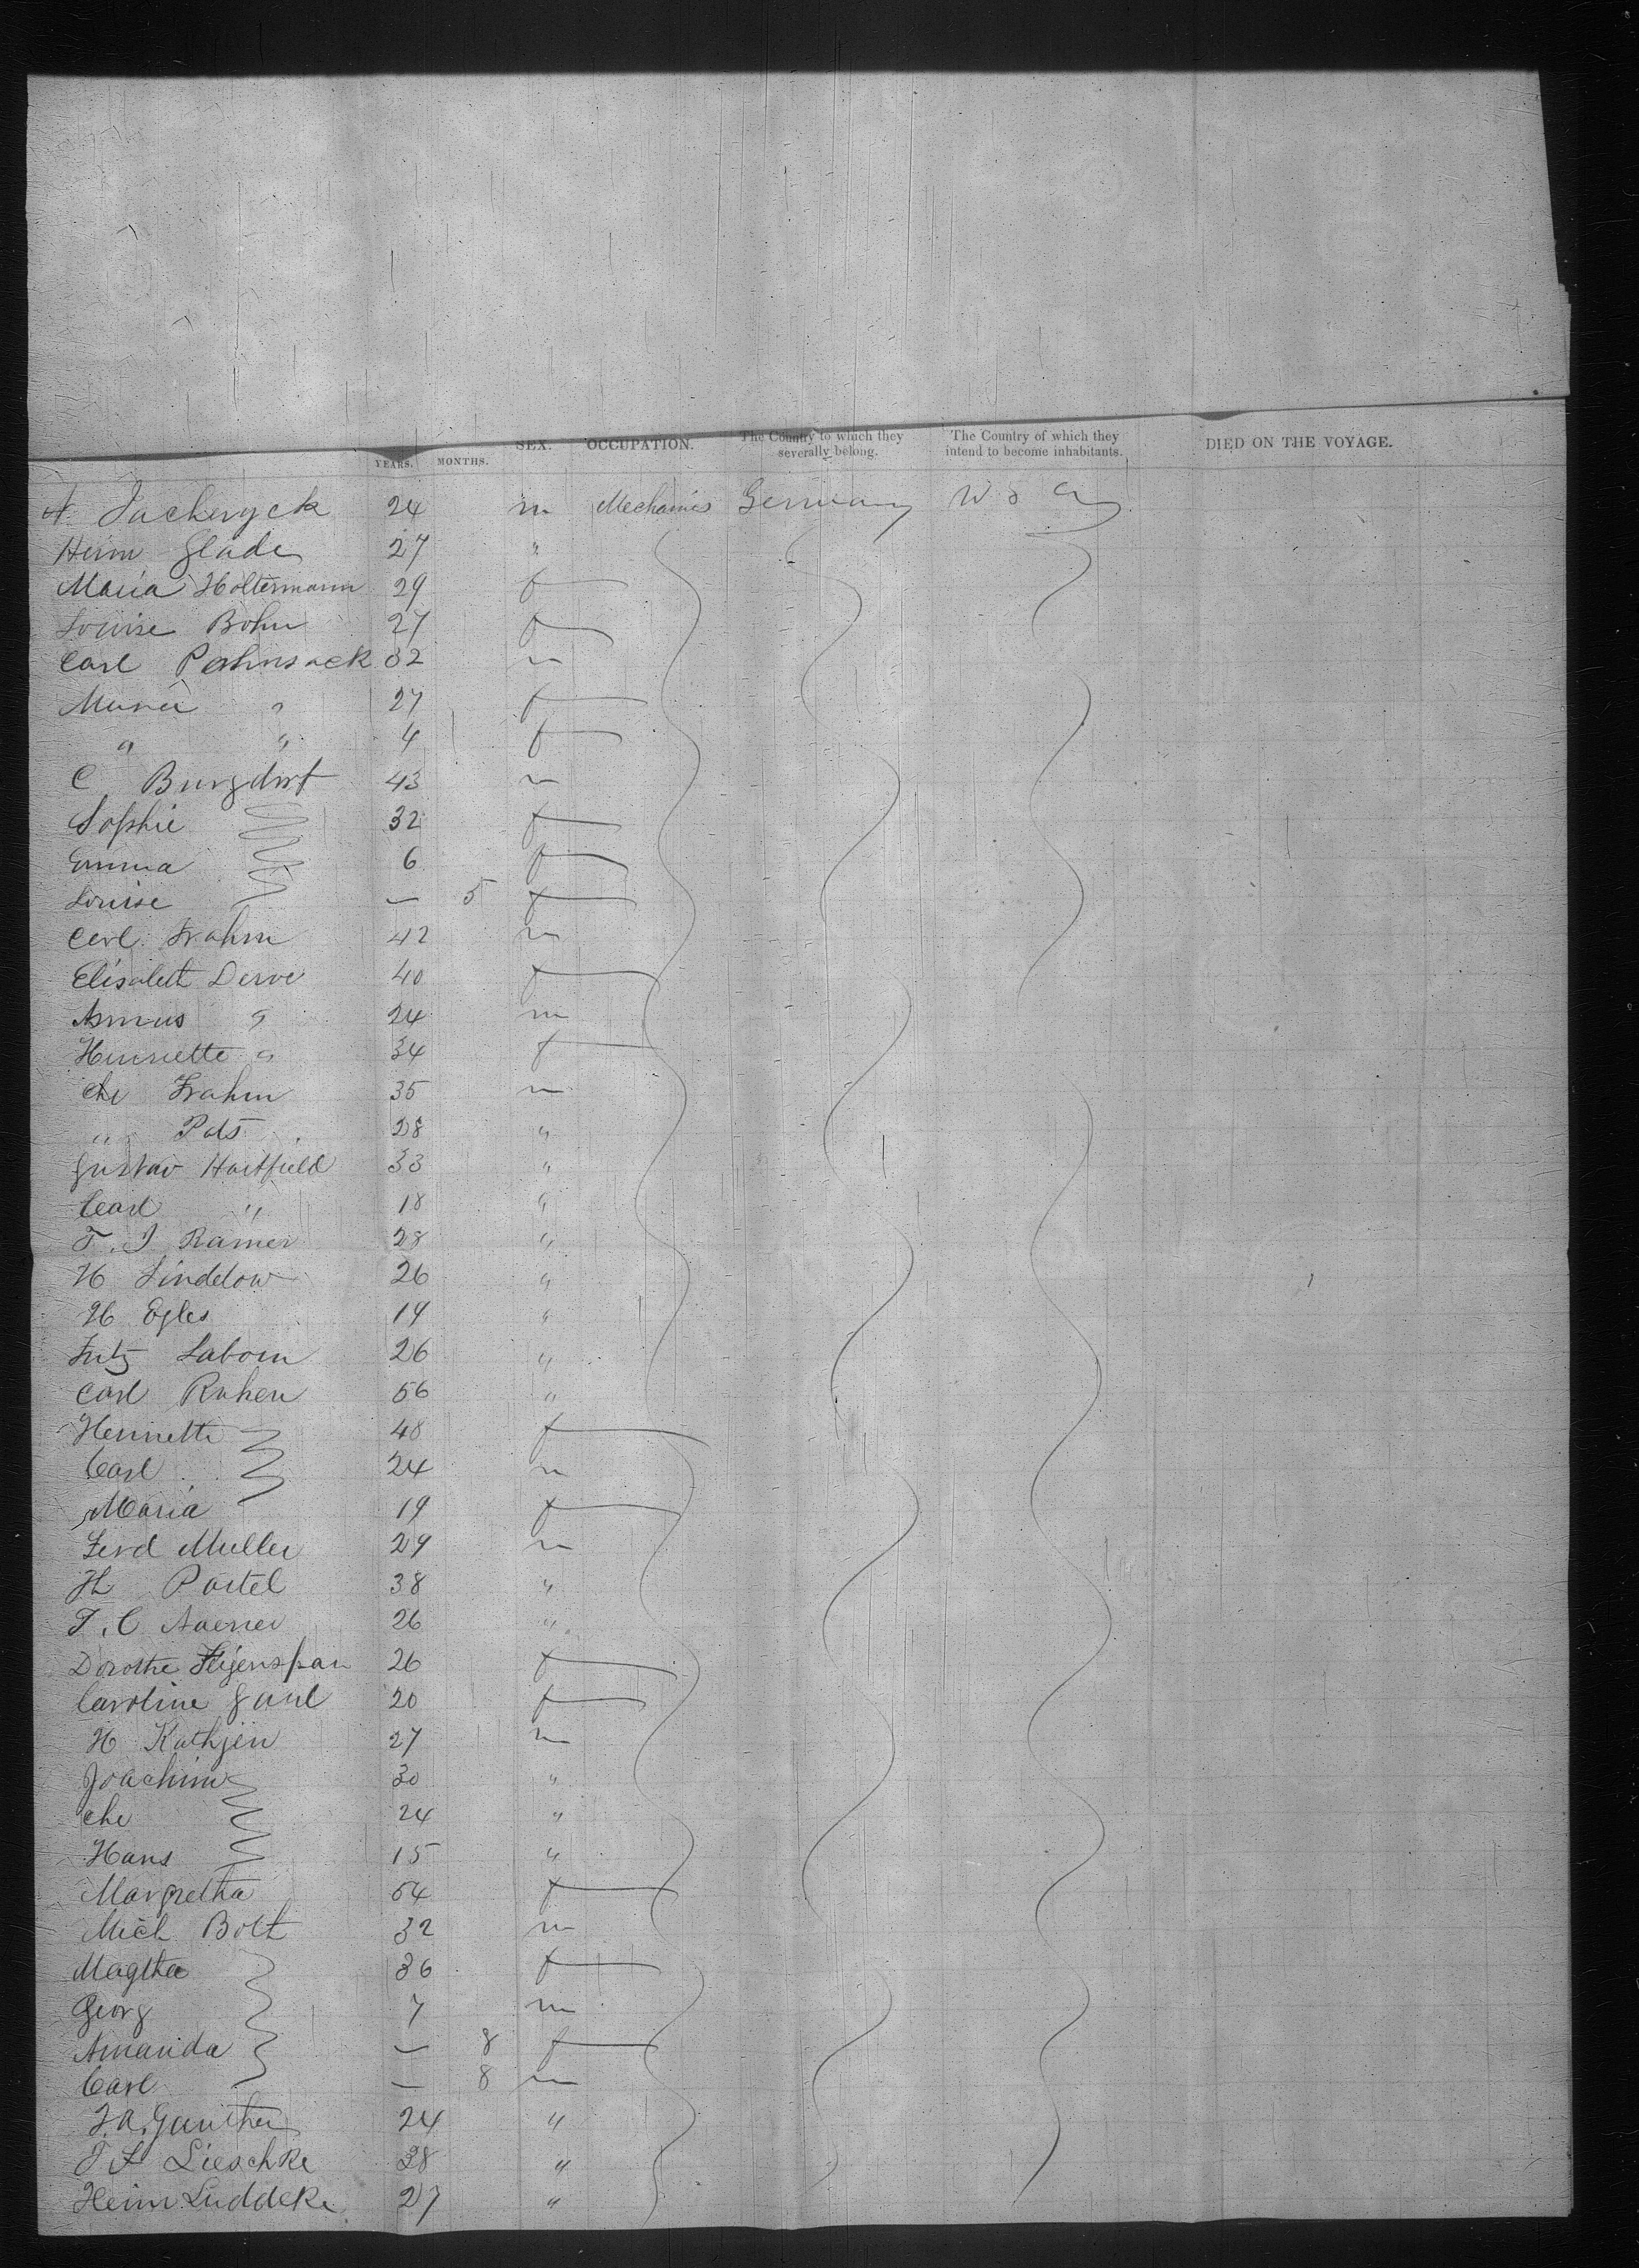 YEARS. MONTHS. SEX. OCCUPATION. The Country to which they severally belong. The Country of which they intend to become inhabitants. DIED ON THE VOYAGE.
24 m Mechanics Germany
Heinr Glade 27 "
Maria Holtermann 29 f
Louise Bohn 27 f
Carl Pahnsack 32 m
Maria " 27 f
" " 4 f
C Burgdorf 43 m
Sophie 32 f
Emma 6 f
Louise — 5 f
Carl Frahm 42 m
Elisabeth Derve 40 f
Asmus " 24 m
Henriette " 34 f
Chr Frahm 35 m
" Pats 28 "
Gustav Hartfield 33 "
Carl " 18 "
F. J Ramer 28 "
H Lindelow 26 "
H Egles 19 "
Fritz Laborn 26 "
Carl Ruhen 56 "
Henriette 48 f
Carl 24 m
Maria 19 f
Ferd Muller 29 m
H Partel 38 "
F. C 26 "
Dorothe Fligenspan 26 f
Caroline Gaul 20 f
H Kathjen 27 m
Joachim 30 "
Chr 24 "
Hans 15 "
Margretha 54 f
Mich Bolt 32 m
Magtha 36 f
Georg 7 m
Amanda — 8 f
Carl — 8 m
J. A. Gunther 24 "
J F Lieschke 28 "
Heinr Luddeke 27 "